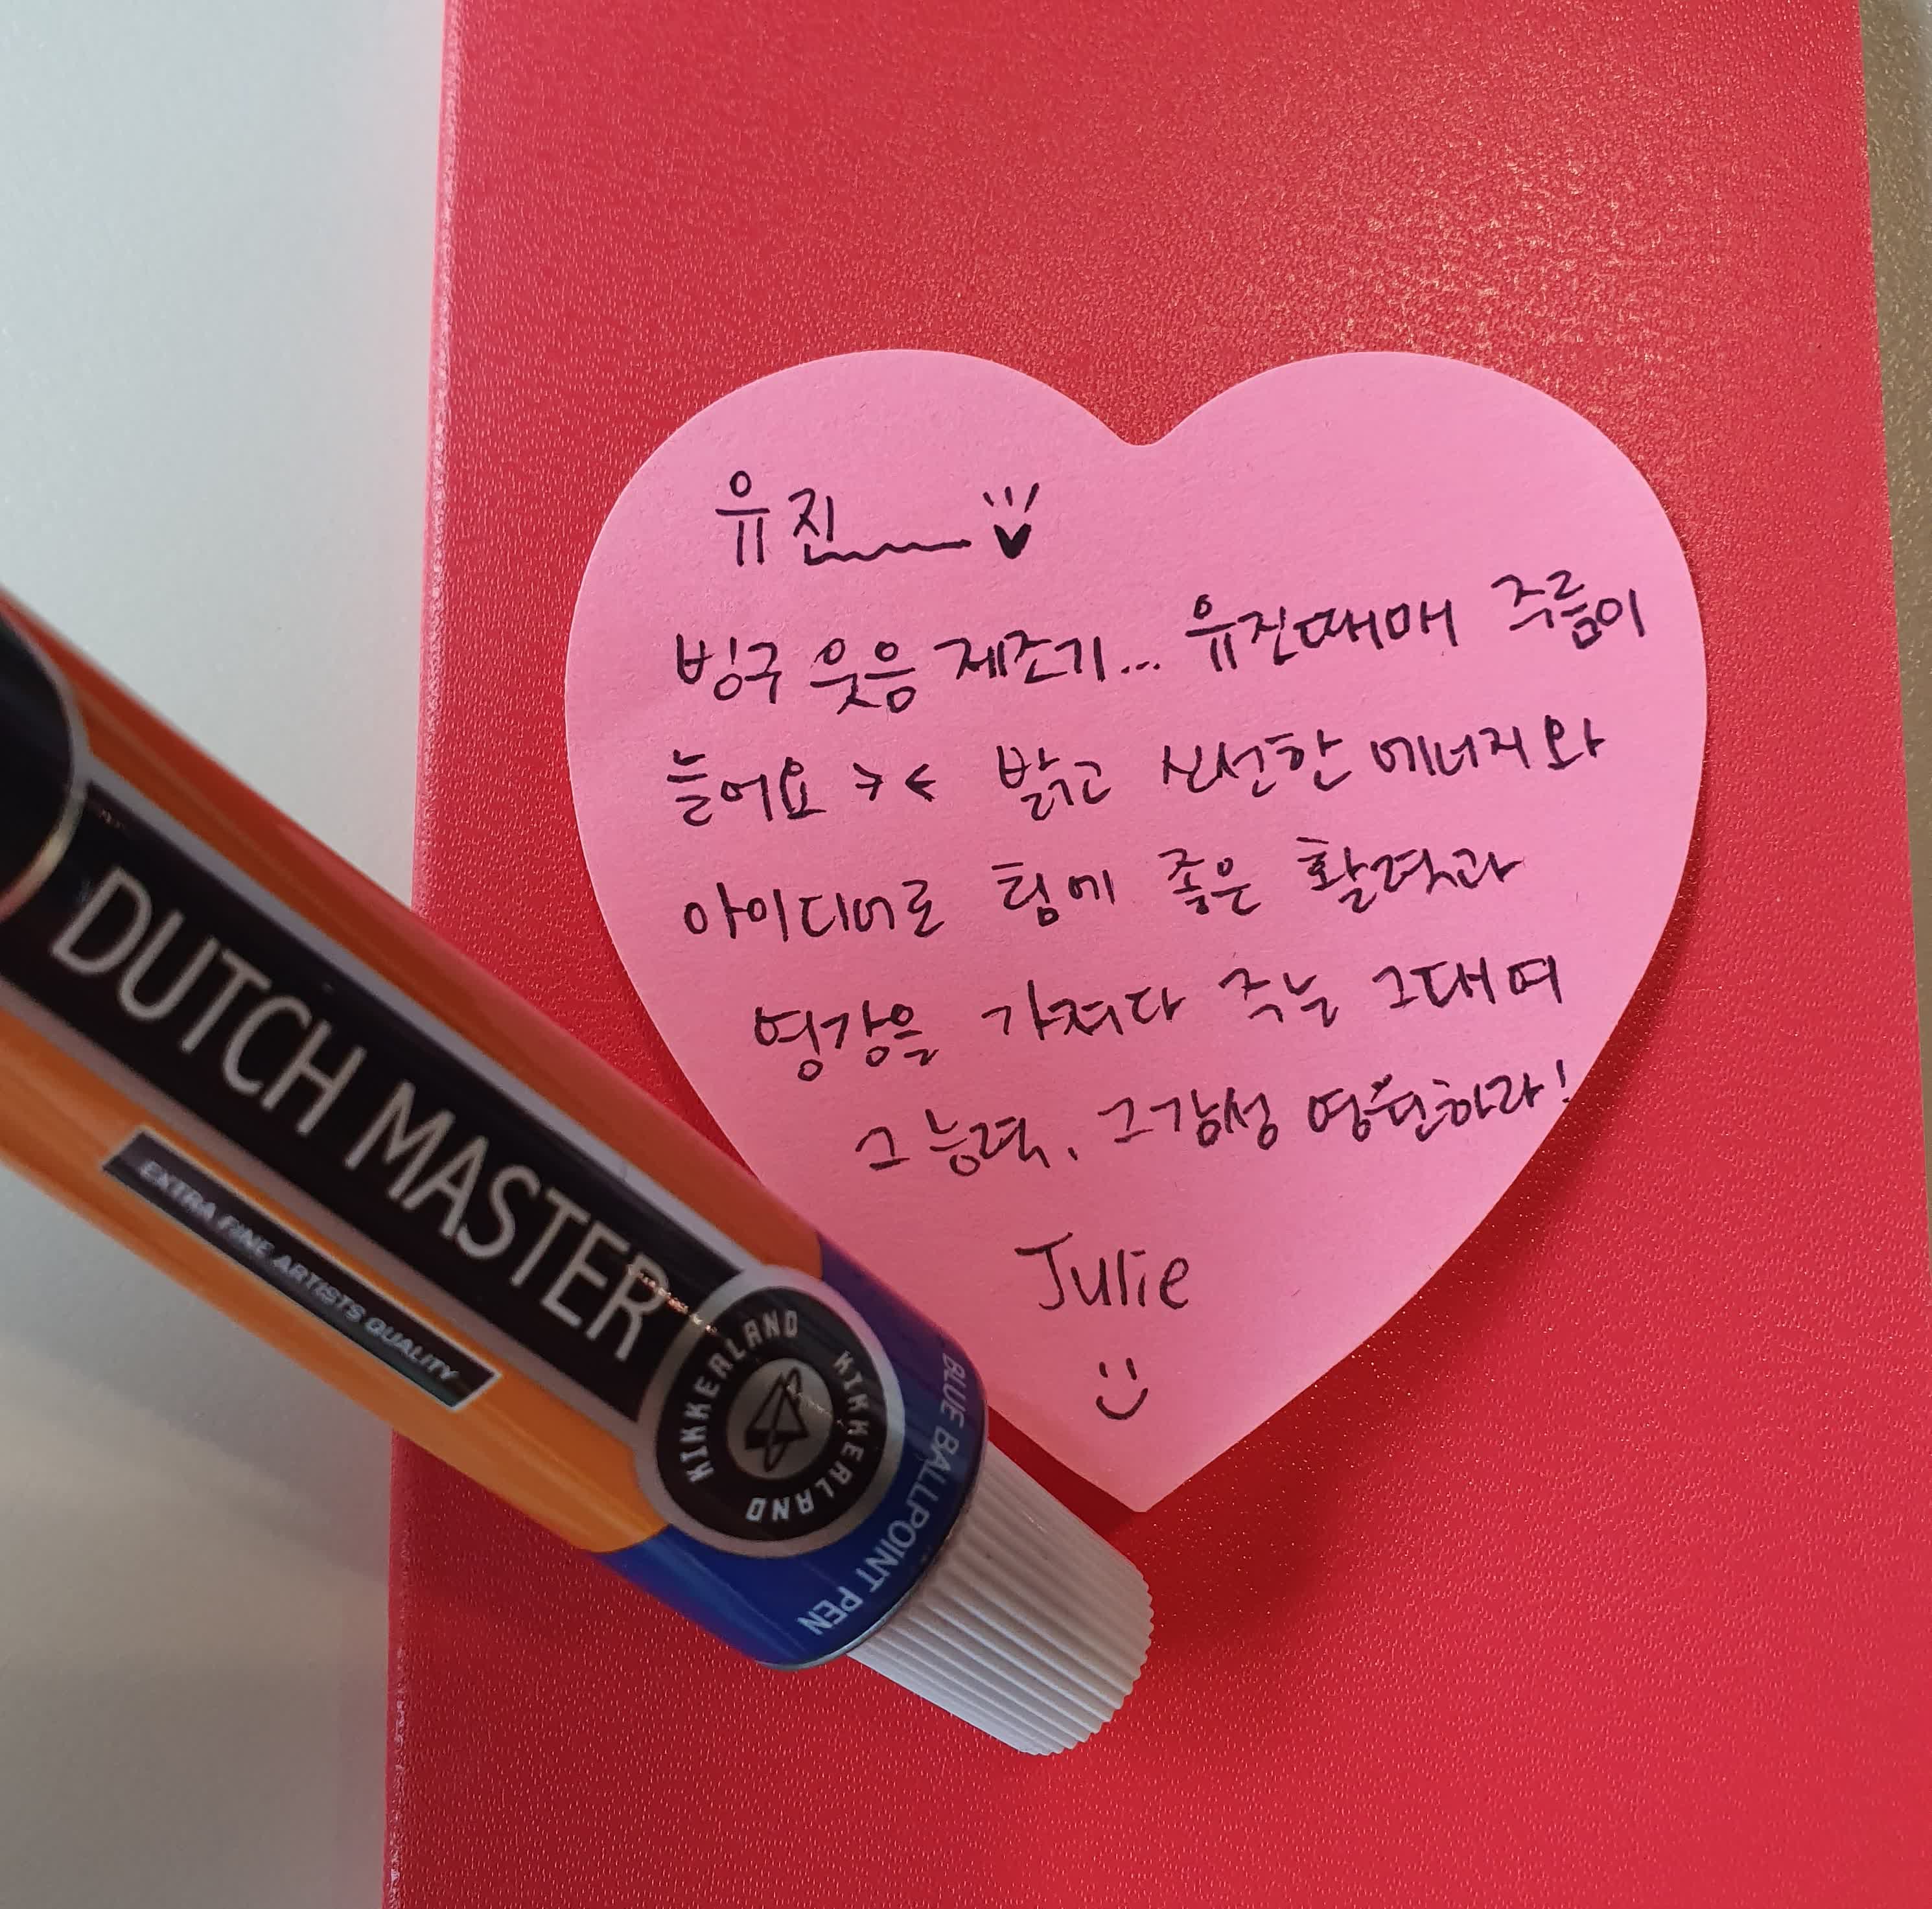 유진
빙구 웃음 제조기... 유진때매 주름이
늘어요 >< 밝고 신선한 에너지와
아이디어로 팀에 좋은 활력과
영감을 가져다 주는 그대여
그 능력, 그 감성 영원하라!
Julie
DUTCH MASTER
EXTRA FINE ARTISTS QUALITY
KIKKERLAND KIKKERLAND KIKKERLAND
BLUE BALLPOINT PEN